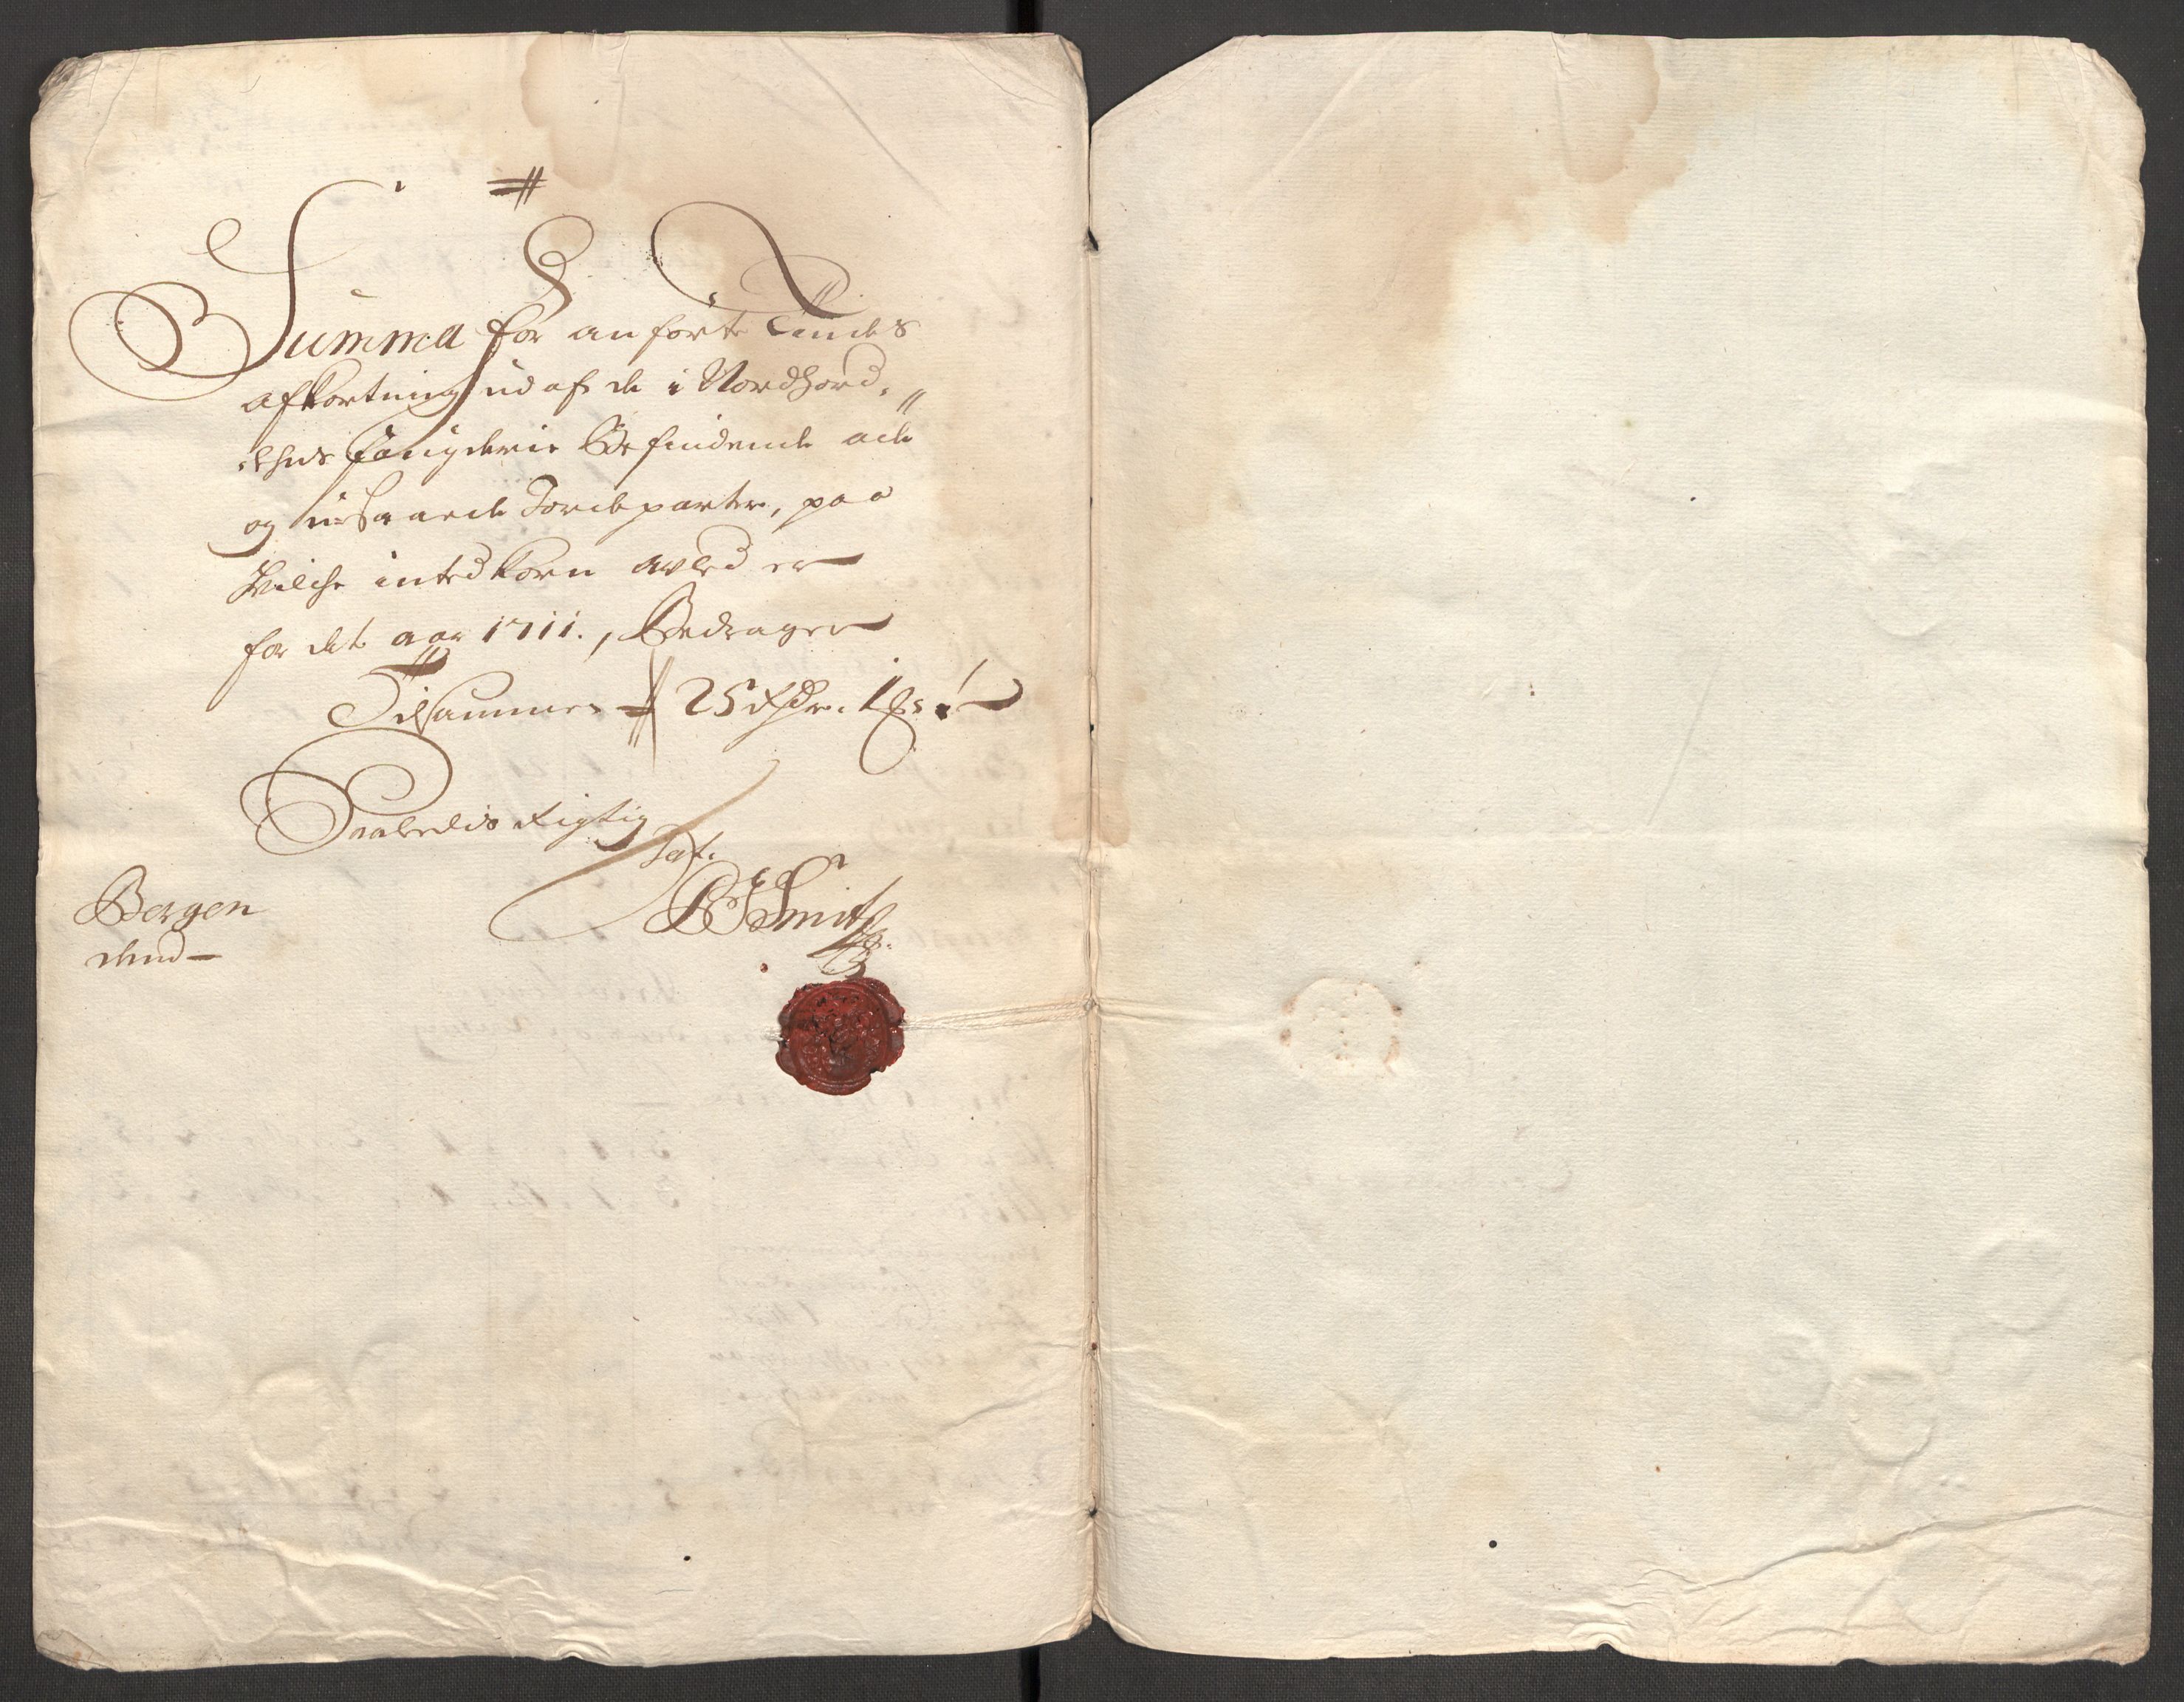 Summa for anförte Tiendes
afkortning ud af de i Nordhord,
lehns fougderie Befindende öde
og usaaede Jordeparter, paa
hvilche inted korn avled er
for det aar 1711., Bedrager
Tilsammen 25 rdr. 1
Saaledis rigtig
Smith
Bergen